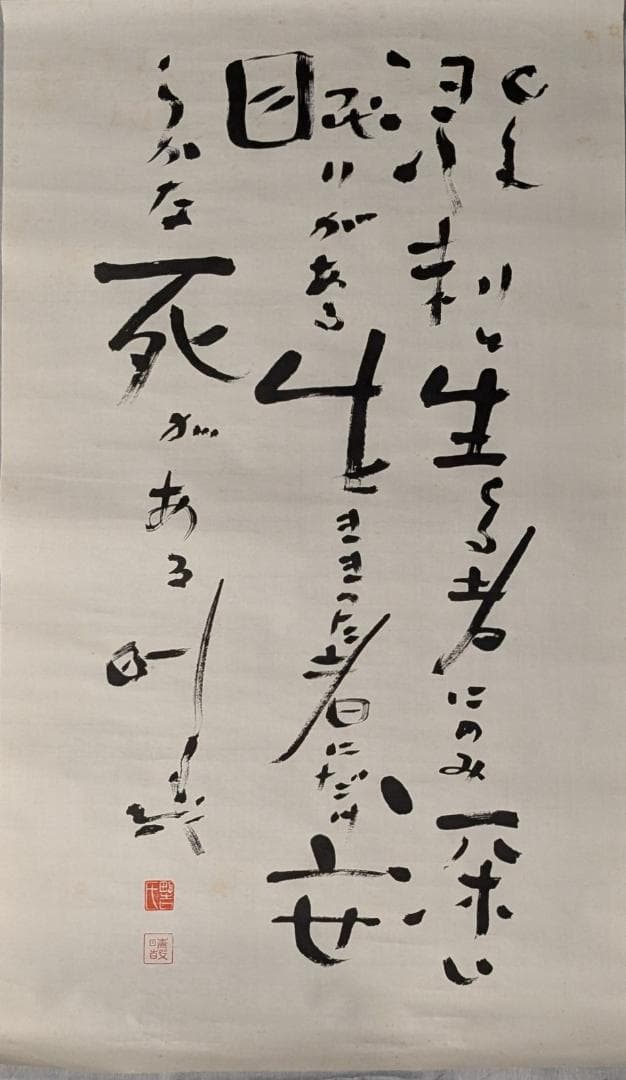 溌剌と生くる者にのみ深い
眠りがある生ききった者にだけ安
らかな死がある